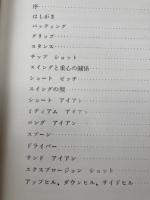 序
はしがき
パッティング
グリップ
スタンス
チップ ショット
スイングと重心の關係
ショート ピッチ
スイングの型
ショート アイアン
ミディアム アイアン
ロング アイアン
スプーン
ドライバー
サンド アイアン
エクスプロージョン ショット
アップヒル,ダウンヒル,サイドヒル